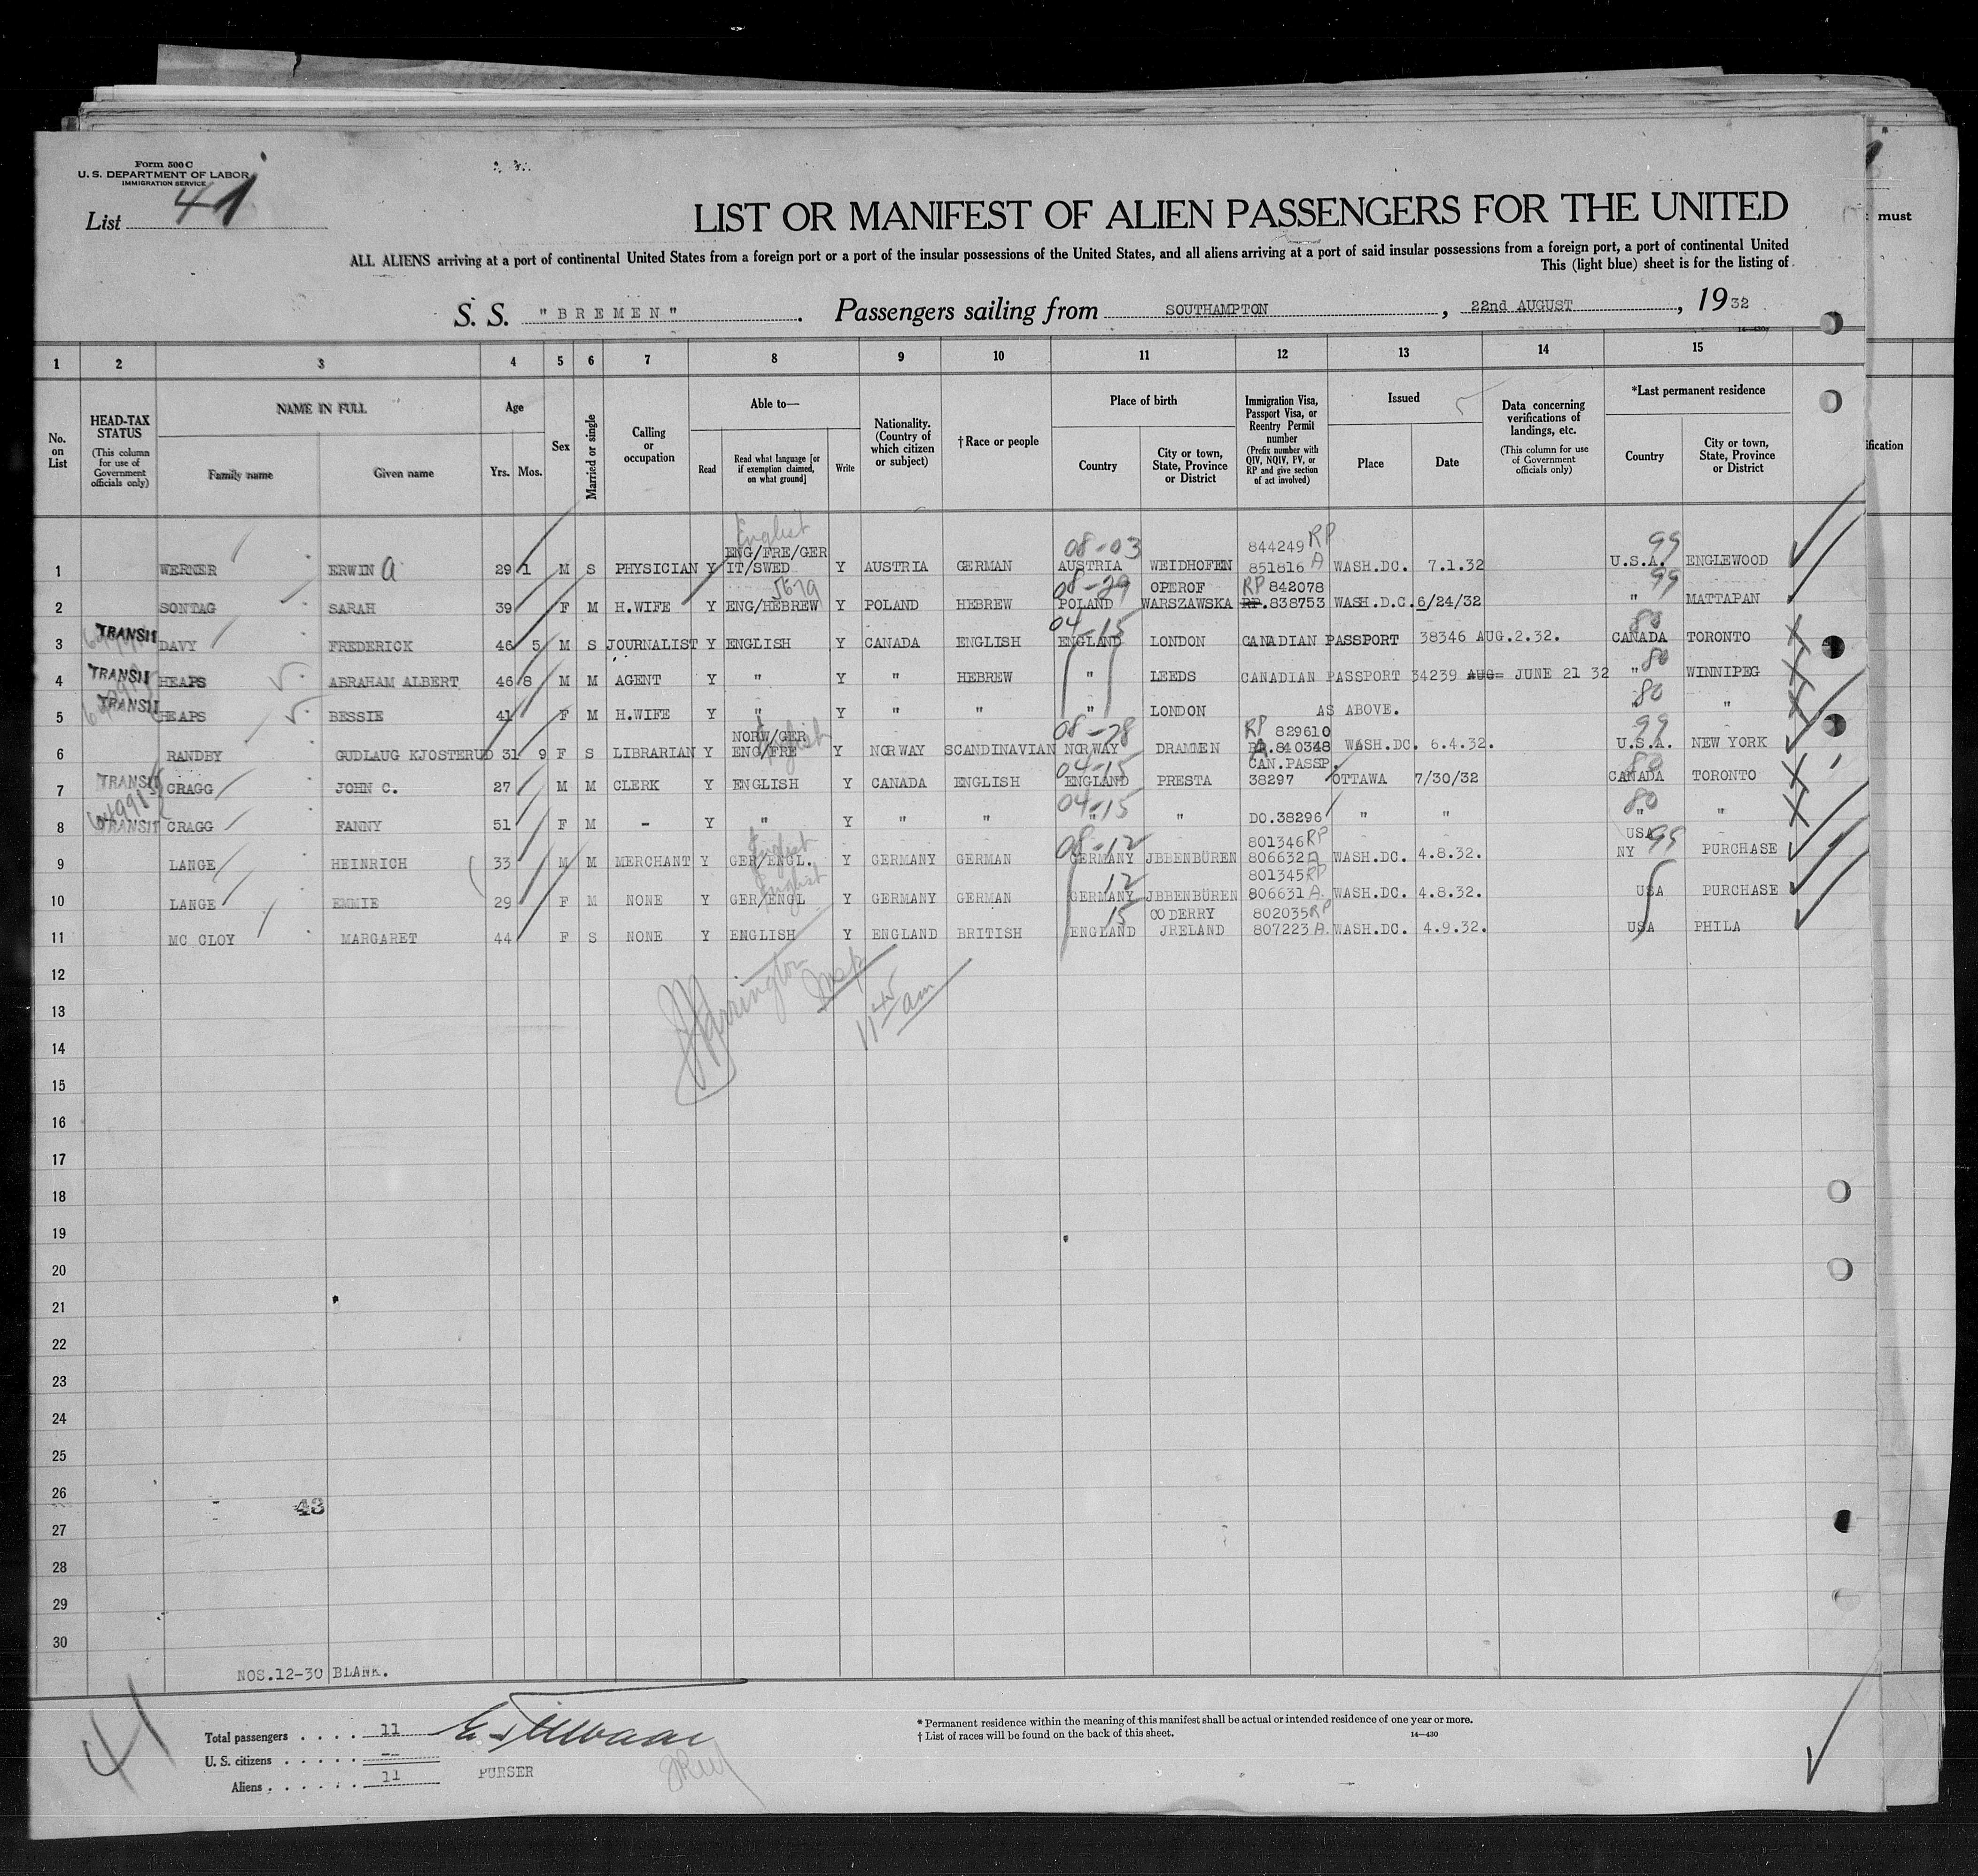 Form 500 C
U. S. DEPARTMENT OF LABOR
IMMIGRATION SERVICE
List 41
LIST OR MANIFEST OF ALIEN PASSENGERS FOR THE UNITED
must
ALL ALIENS arriving at a port of continental United States from a foreign port or a port of the insular possessions of the United States, and all aliens arriving at a port of said insular possessions from a foreign port, a port of continental United
This (light blue) sheet is for the listing of
S. S. "BREMEN". Passengers sailing from SOUTHAMPTON, 22nd AUGUST, 1932
1 2 3 4 5 6 7 8 9 10 11 12 13 14 15
No. on List
HEAD-TAX STATUS (This column for use of Government officials only)
NAME IN FULL
Family name Given name
Age
Yrs. Mos.
Sex
Married or single
Calling or occupation
Able to—
Read Read what language [or if exemption claimed, on what ground] Write
Nationality. (Country of which citizen or subject)
†Race or people
Place of birth
Country City or town, State, Province or District
Immigration Visa, Passport Visa, or Reentry Permit number (Prefix number with QIV, NQIV, PV, or RP and give section of act involved)
Issued
Place Date
Data concerning verifications of landings, etc. (This column for use of Government officials only)
*Last permanent residence
Country City or town, State, Province or District
English
ENG/FRE/GER 08-03 844249 RP 99
1 WERNER ERWIN a 29 1 M S PHYSICIAN Y IT/SWED Y AUSTRIA GERMAN AUSTRIA WEIDHOFEN 851816 A WASH.DC. 7.1.32 U.S.A. ENGLEWOOD
08-29 OPEROF RP 842078 99
2 SONTAG SARAH 39 F M H.WIFE Y ENG/HEBREW Y POLAND HEBREW POLAND WARSZAWSKA RP.838753 WASH.D.C. 6/24/32 " MATTAPAN
04-15 80
3 TRANSIT DAVY FREDERICK 46 5 M S JOURNALIST Y ENGLISH Y CANADA ENGLISH ENGLAND LONDON CANADIAN PASSPORT 38346 AUG.2.32. CANADA TORONTO
80
4 TRANSIT HEAPS ABRAHAM ALBERT 46 8 M M AGENT Y " Y " HEBREW " LEEDS CANADIAN PASSPORT 34239 AUG- JUNE 21 32 " WINNIPEG
80
5 TRANSIT HEAPS BESSIE 41 F M H.WIFE Y " Y " " " LONDON AS ABOVE. " "
NORW/GER English 08-28 RP 829610 99
6 RANDBY GUDLAUG KJOSTERUD 31 9 F S LIBRARIAN Y ENG/FRE Y NORWAY SCANDINAVIAN NORWAY DRAMMEN 840348 WASH.DC. 6.4.32. U.S.A. NEW YORK
04-15 CAN.PASSP. 80
7 TRANSIT CRAGG JOHN C. 27 M M CLERK Y ENGLISH Y CANADA ENGLISH ENGLAND PRESTA 38297 OTTAWA 7/30/32 CANADA TORONTO
04-15 80
8 TRANSIT CRAGG FANNY 51 F M - Y " Y " " " " DO.38296 " " " "
English 08-12 801346 RP USA 99
9 LANGE HEINRICH 33 M M MERCHANT Y GER/ENGL. Y GERMANY GERMAN GERMANY JBBENBÜREN 806632 A WASH.DC. 4.8.32. NY PURCHASE
English 12 801345 RP
10 LANGE EMMIE 29 F M NONE Y GER/ENGL Y GERMANY GERMAN GERMANY JBBENBÜREN 806631 A. WASH.DC. 4.8.32. USA PURCHASE
15 CO DERRY 802035 RP
11 MC CLOY MARGARET 44 F S NONE Y ENGLISH Y ENGLAND BRITISH ENGLAND JRELAND 807223 A. WASH.DC. 4.9.32. USA PHILA
12
Insp
13
11 45 am
14
15
16
17
18
19
20
21
22
23
24
25
26
43
27
28
29
30
NOS.12-30 BLANK.
41
Total passengers . . . . 11
U. S. citizens . . . . . --
Aliens . . . . . . 11
PURSER
* Permanent residence within the meaning of this manifest shall be actual or intended residence of one year or more.
† List of races will be found on the back of this sheet.
14—430